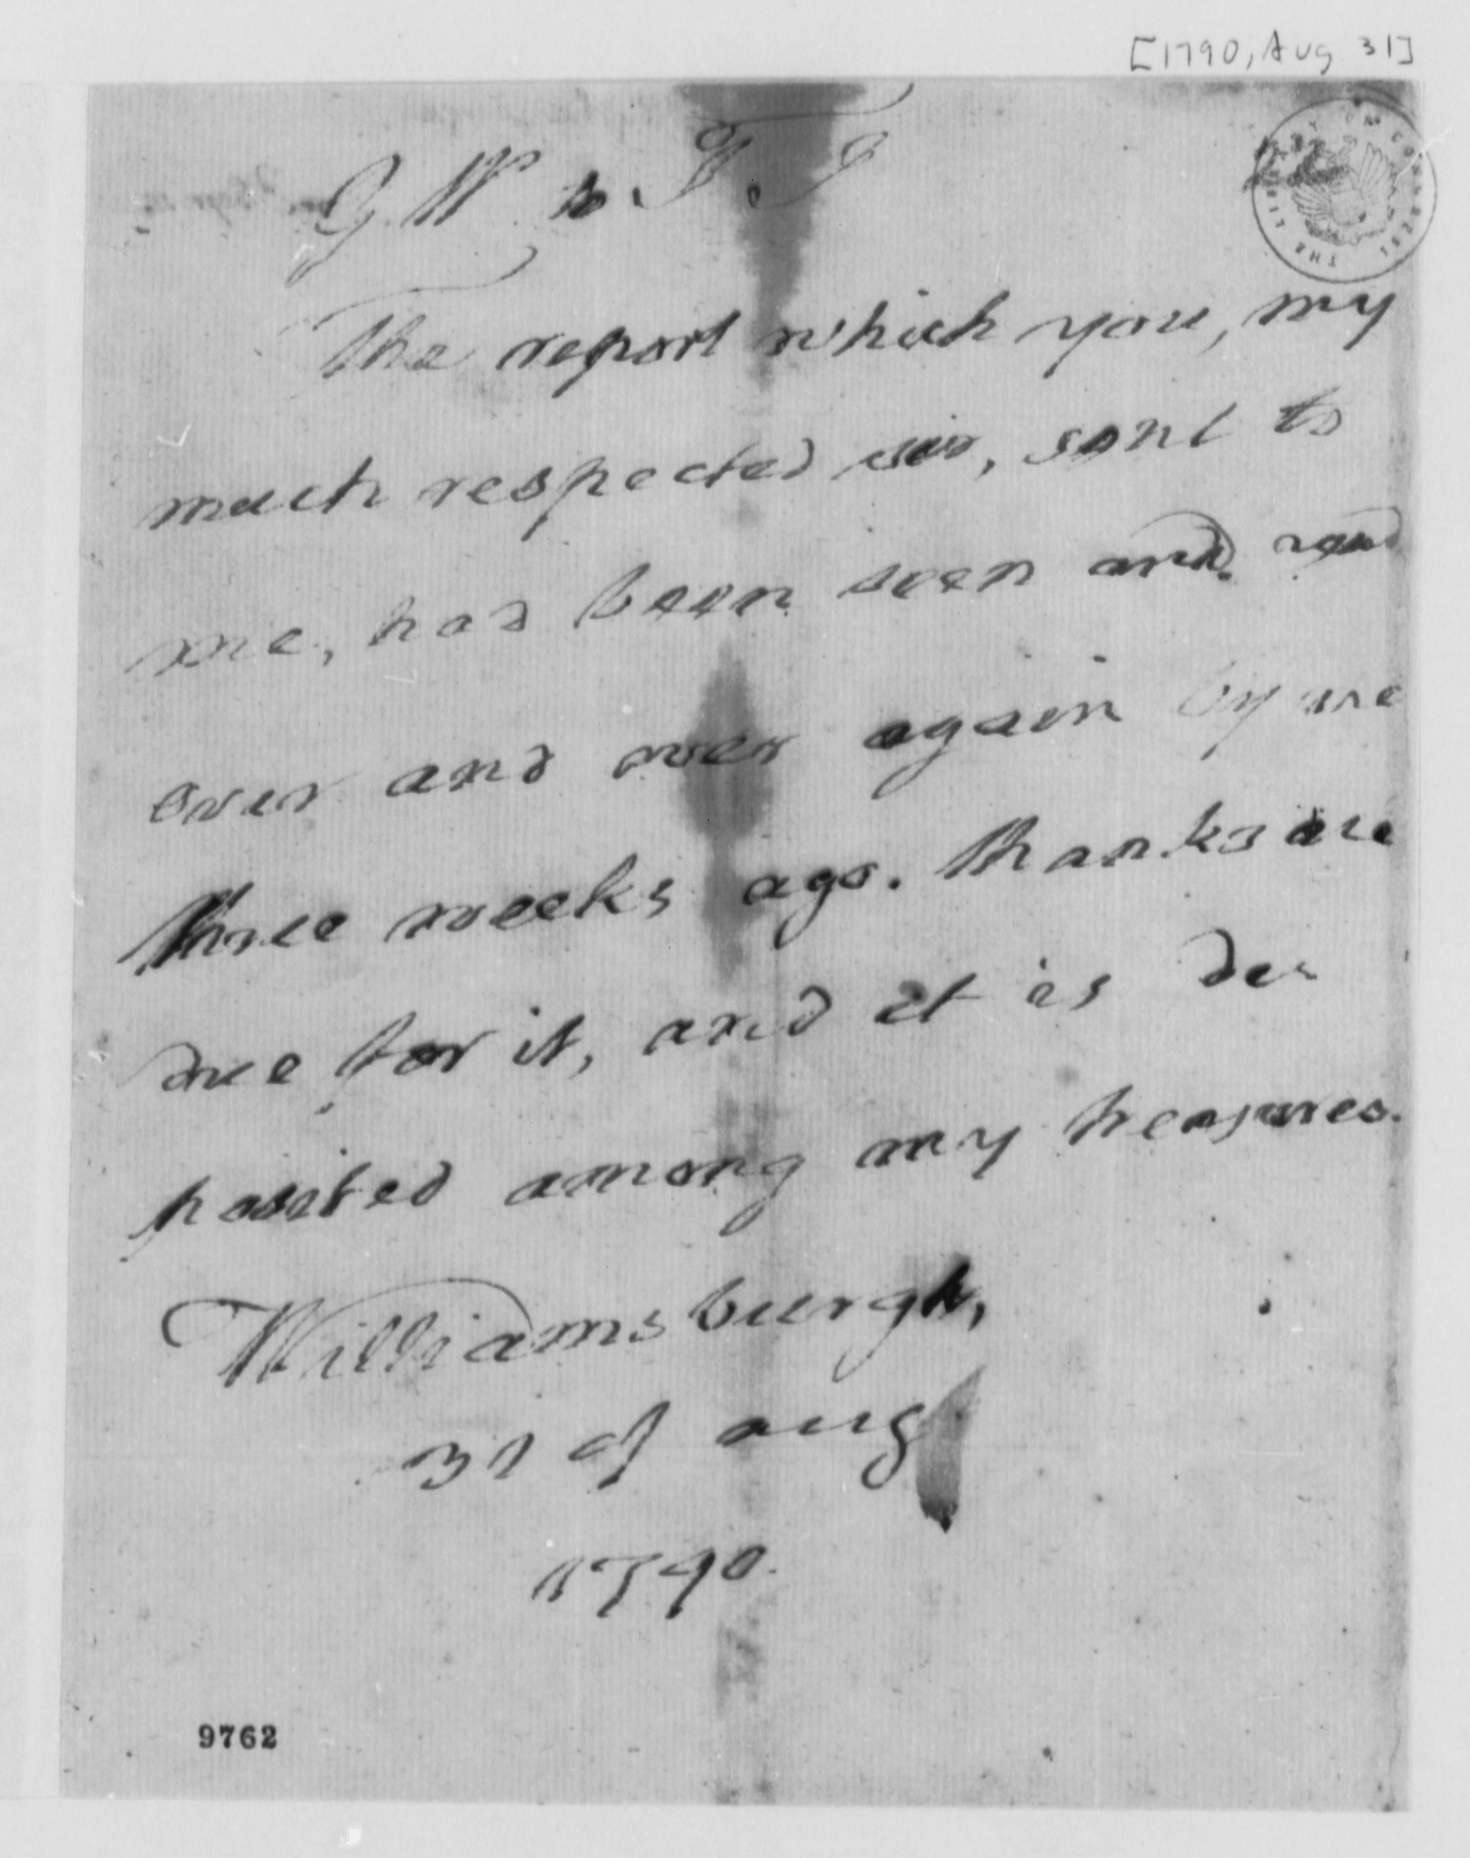 [1790, Aug 31]
THE LIBRARY OF CONGRESS
G. W. to T. J
The report which you, my
much respected sir, sent to
me, had been seen and read
over and over again by me
three weeks ago. Thanks are
due for it, and it is de
posited among my treasures.
Williamsburgh,
31 of aug
1790.
9762